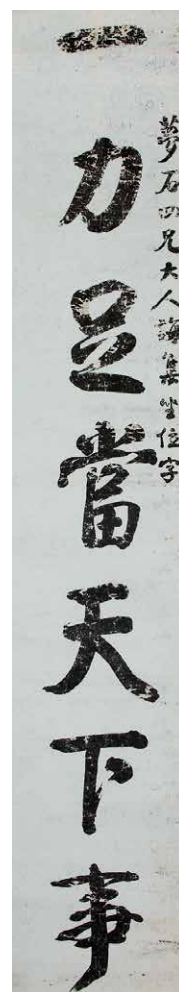 夢石四兄大人誨集坐位字
一力足當天下事